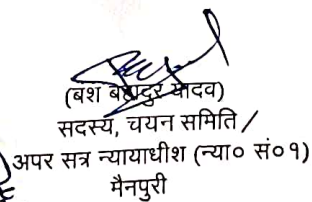 (बश बहादुर यादव)
सदस्य, चयन समिति /
अपर सत्र न्यायाधीश (न्या० सं०१)
मैनपुरी